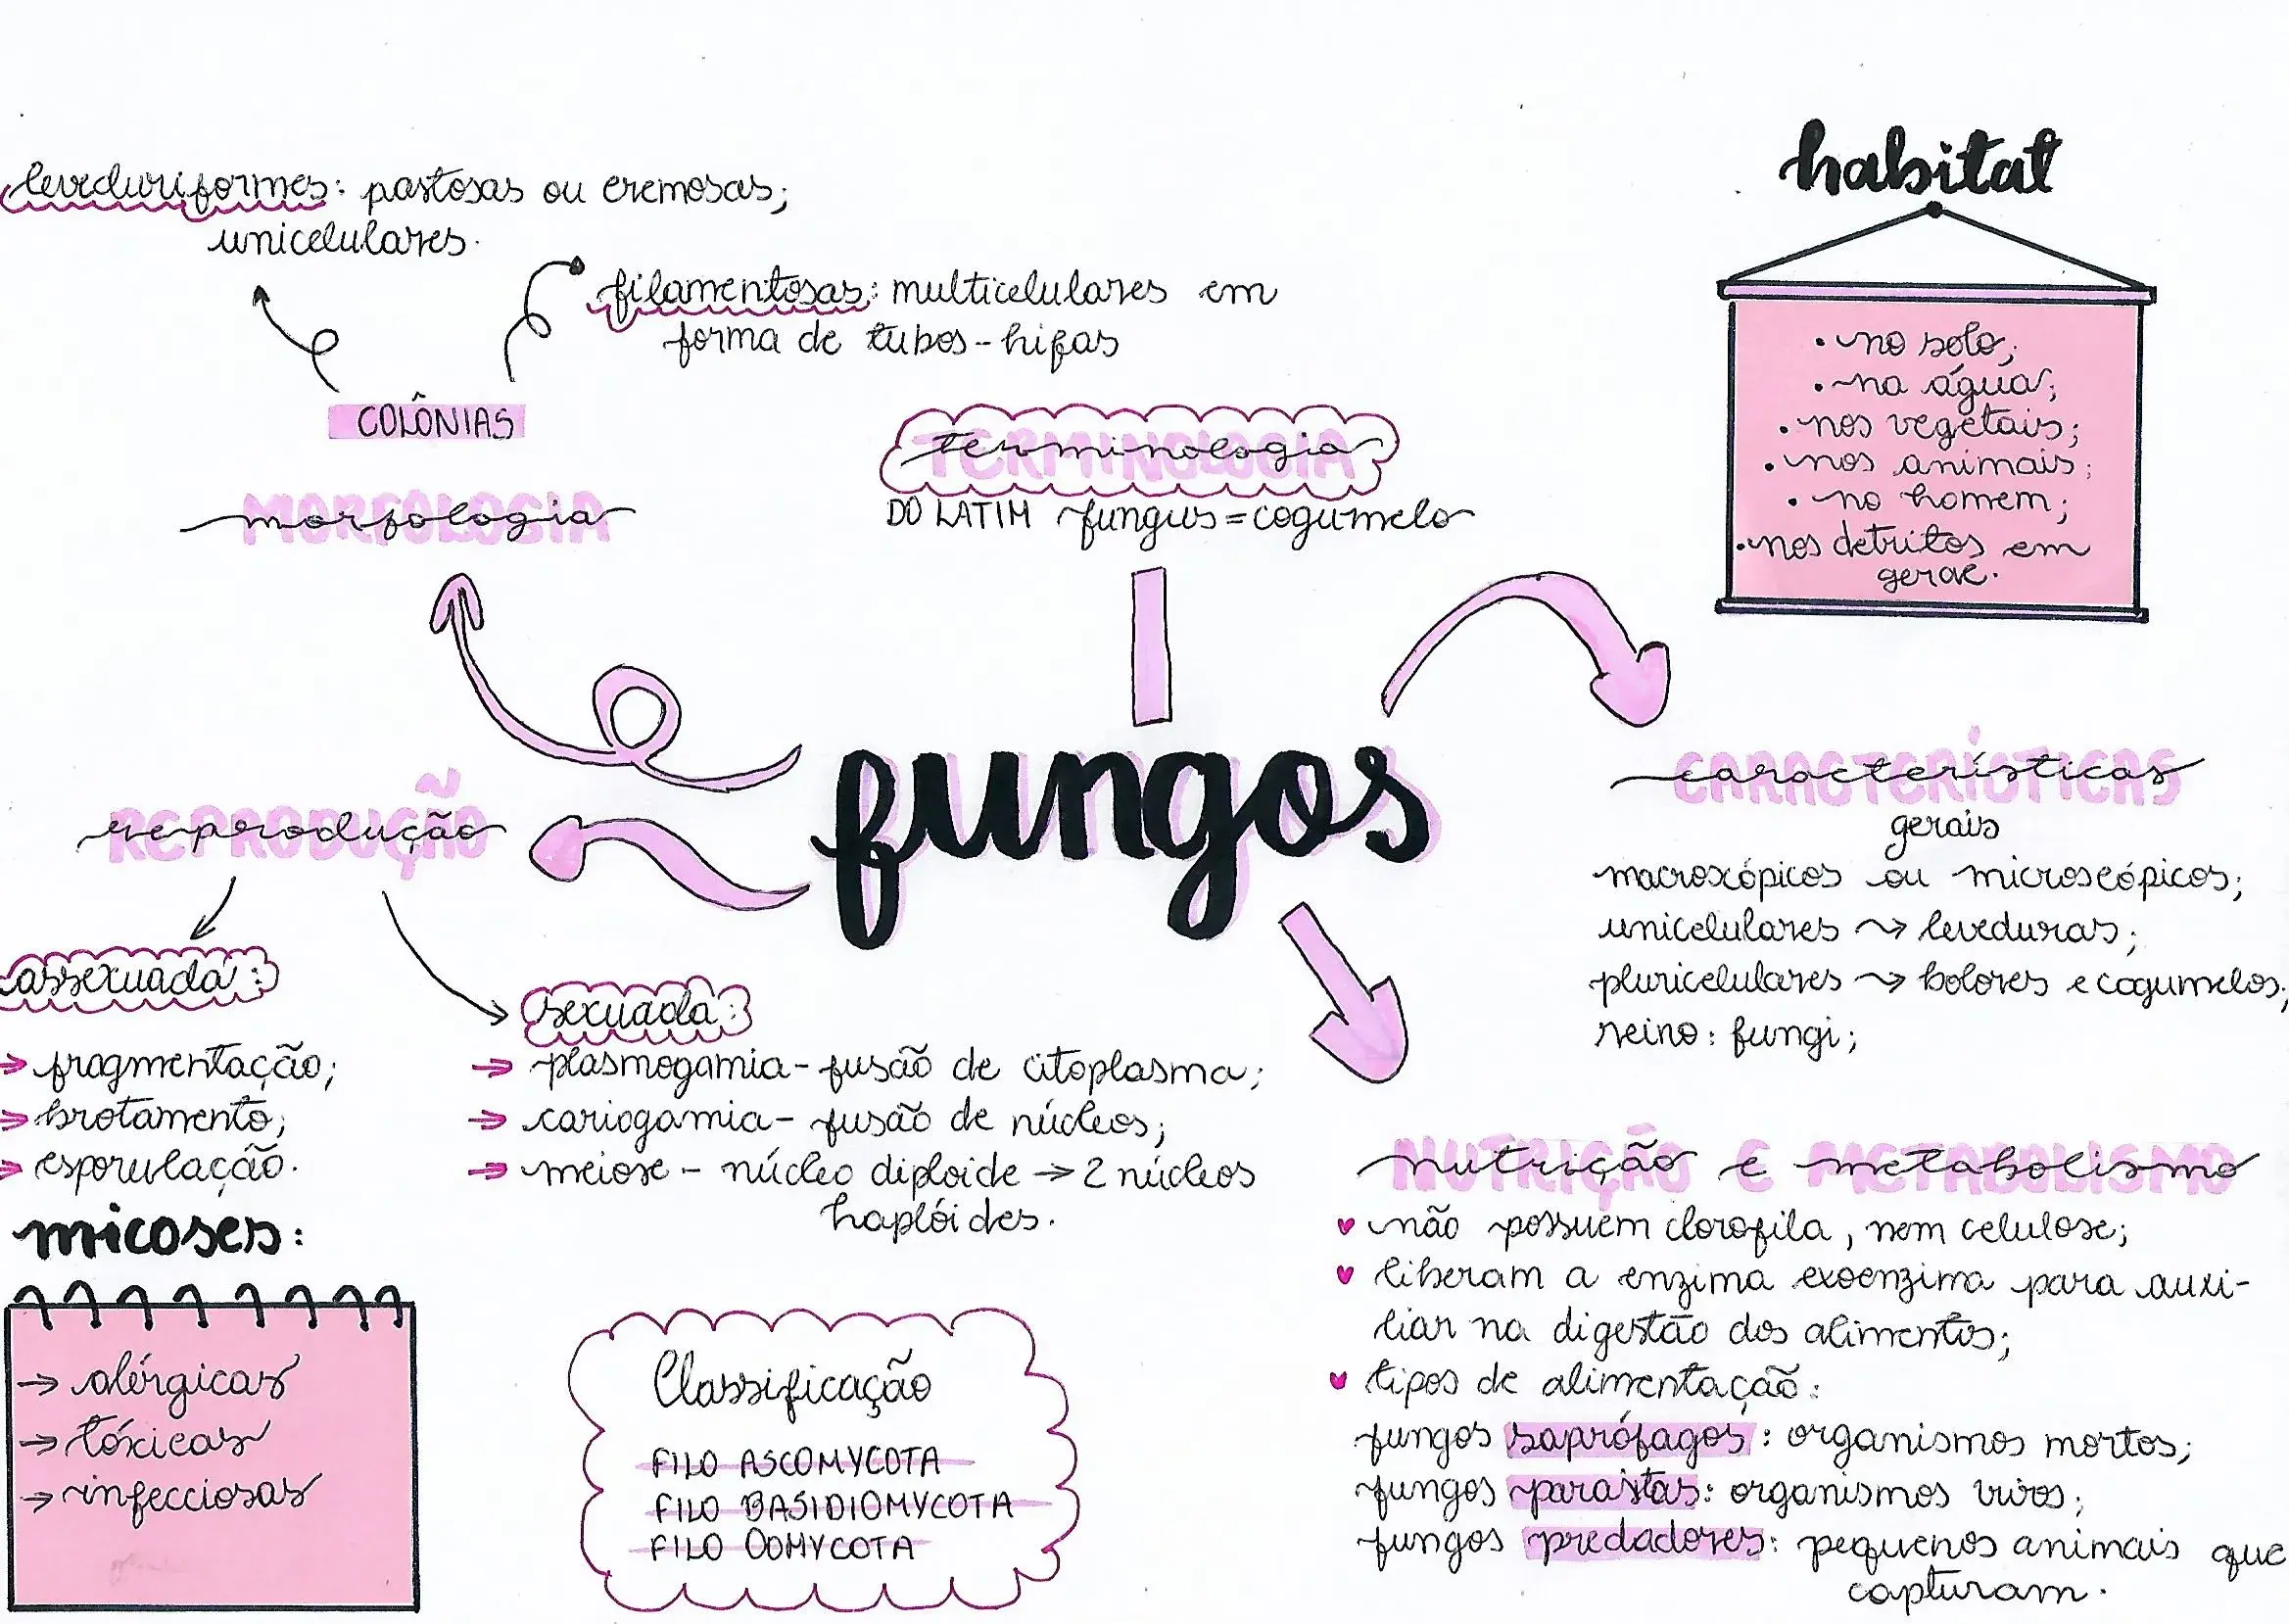 leveduriformes: pastosas ou cremosas;
unicelulares.
filamentosas: multicelulares em
forma de tubos-hifas
COLÔNIAS
MORFOLOGIA
morfologia
TERMINOLOGIA
terminologia
DO LATIM fungus=cogumelo
habitat
• no solo;
• na água;
• nos vegetais;
• nos animais;
• no homem;
• nos detritos em
geral.
fungos
CARACTERÍSTICAS
características
gerais
macroscópicos ou microscópicos;
unicelulares ⤳ leveduras;
pluricelulares ⤳ bolores e cogumelos;
reino: fungi;
REPRODUÇÃO
reprodução
assexuada:
→ fragmentação;
→ brotamento;
→ esporulação.
sexuada:
→ plasmogamia - fusão de citoplasma;
→ cariogamia - fusão de núcleos;
→ meiose - núcleo diploide → 2 núcleos
haplóides.
micoses:
→ alérgicas
→ tóxicas
→ infecciosas
Classificação
FILO ASCOMYCOTA
FILO BASIDIOMYCOTA
FILO OOMYCOTA
NUTRIÇÃO E METABOLISMO
nutrição e metabolismo
♥ não possuem clorofila, nem celulose;
♥ liberam a enzima exoenzima para auxi-
liar na digestão dos alimentos;
♥ tipos de alimentação:
fungos saprófagos: organismos mortos;
fungos parasitas: organismos vivos;
fungos predadores: pequenos animais que
capturam.